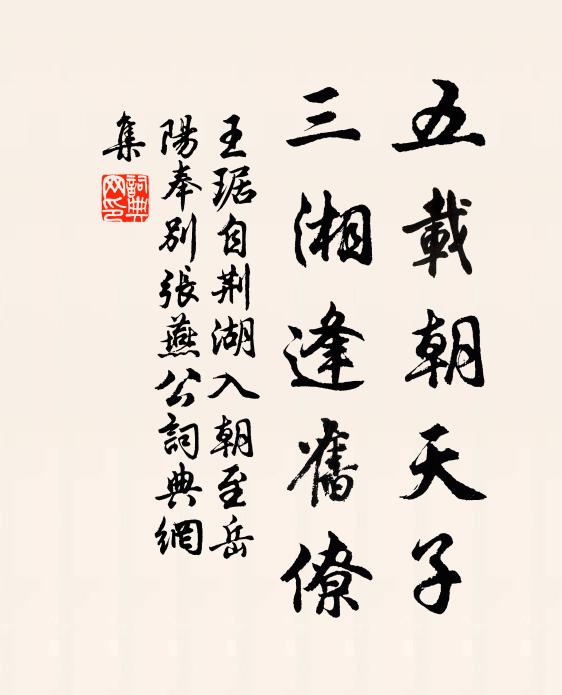 五載朝天子
三湘逢舊僚
王琚自荆湖入朝至岳
陽奉別張燕公詞典網
集
詞典
网印